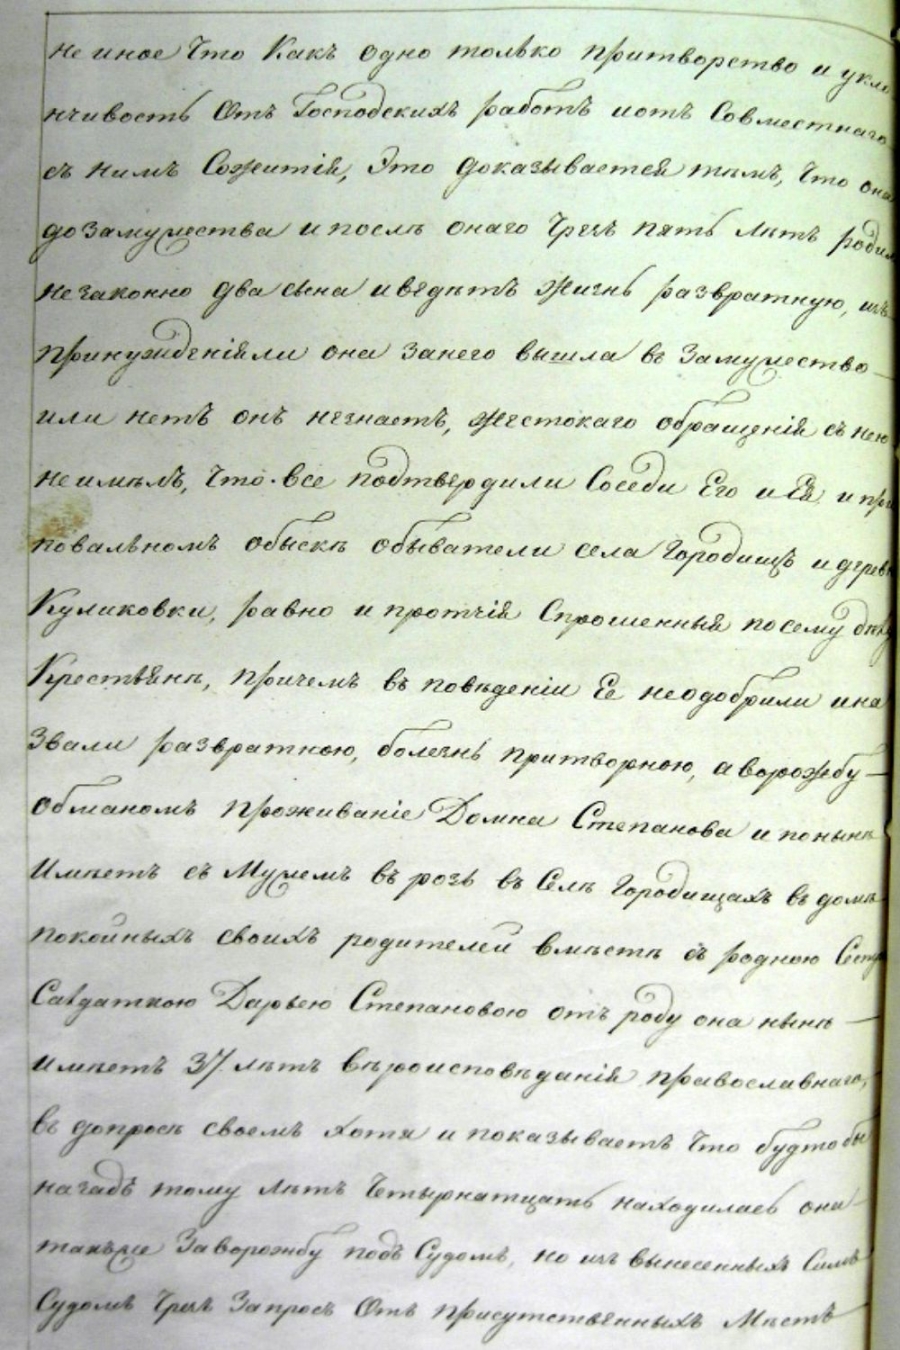 не иное что какъ одно только притворство и укло
нчивость отъ Господскихъ работъ и отъ Совместнаго
съ нимъ Сожитія, Это доказывается тѣмъ, что она
до замужества и послѣ онаго чрезъ пять лѣтъ роди
незаконно два сына и ведѣтъ жизнь развратную, изъ
принужденія ли она за него вышла въ замужество
или нетъ онъ незнаетъ, жестокаго обращенія съ нею
не имѣлъ, что все подтвердили Соседи Его и Ея, и при
повальномъ обыскѣ обыватели села Городищъ и дерев
Куликовки, равно и протчія Спрошенныя по сему дѣлу
Крестьянѣ, причемъ въ поведеніи Ее неодобрили и на
звали развратною, болезнь притворною, а ворожбу
обманомъ проживаніе Домна Степанова и понынѣ
Имѣетъ съ Мужемъ въ розь въ Селѣ Городищахъ въ домѣ
покойныхъ своихъ родителей вмѣстѣ съ родною Сест
Салдаткою Дарьею Степановою отъ роду она нынѣ
имѣетъ 37 лѣтъ вѣроисповѣданія православнаго,
въ допросѣ своемъ хотя и показываетъ что будто бы
назадъ тому лѣтъ Четырнатцать находилась она
такъже За ворожбу подъ Судомъ, но изъ вынесенныхъ Симъ
Судомъ чрезъ Запросъ Отъ присутственныхъ Мѣстъ